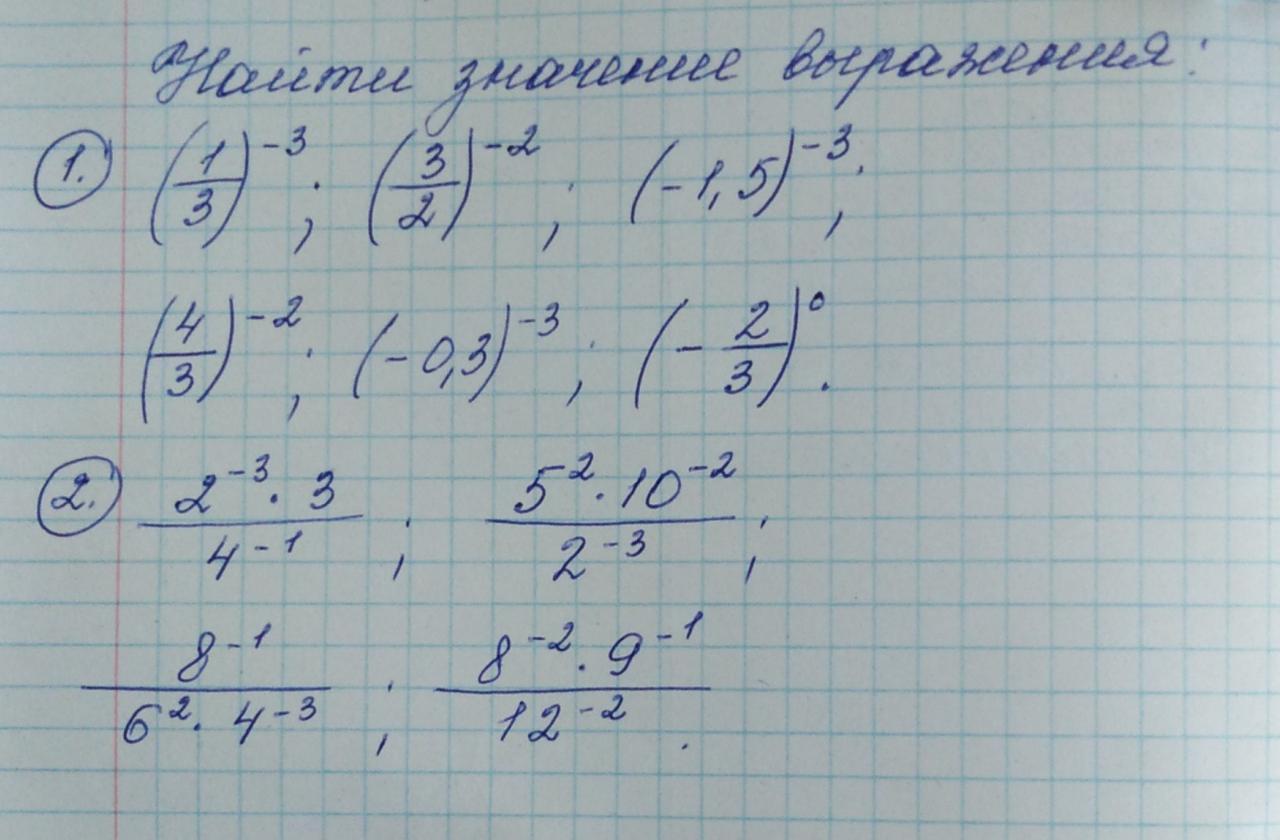 Найти значение выражения:
1. (1/3)⁻³; (3/2)⁻²; (-1,5)⁻³;
(4/3)⁻²; (-0,3)⁻³; (-2/3)⁰.
2. (2⁻³·3)/4⁻¹; (5²·10⁻²)/2⁻³;
8⁻¹/(6²·4⁻³); (8⁻²·9⁻¹)/12⁻².